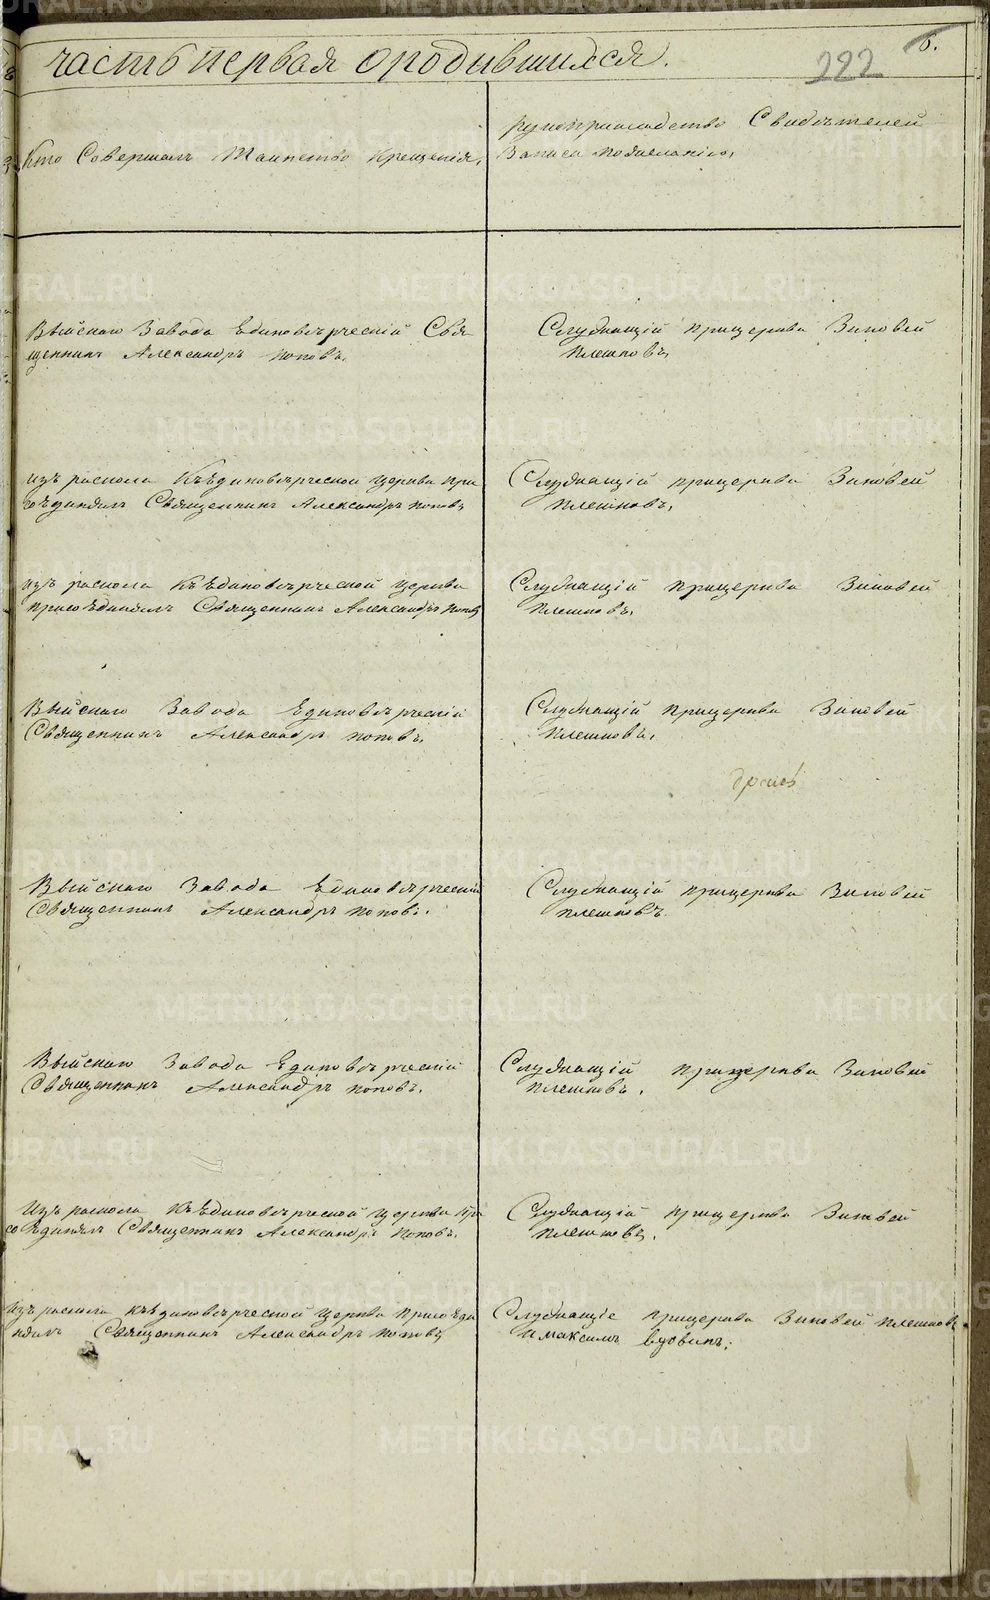 часть первая о родившихся.
222
6.
Кто Совершалъ Таинство Крещенія,
рукоприкладство Свидѣтелей
Записи по желанію,
Выйскаго Завода Единовѣрческій Свя
щенникъ Александръ поповъ,
Служащій прицеркве Зиновей
плешковъ,
изъ раскола КъЕдиновѣрческой церкви при
соѣдинялъ Священникъ Александръ поповъ
Служащій прицеркве Зиновей
плешковъ,
изъ раскола КъЕдиновѣрческой церкви
присоѣдинялъ Священникъ Александръ поповъ
Служащій прицеркве Зиновей
плешковъ,
Выйскаго Завода Единовѣрческій
Священникъ Александръ поповъ,
Служащій прицеркве Зиновей
плешковъ,
Выйскаго Завода Единовѣрческій
Священникъ Александръ поповъ.
Служащій прицеркве Зиновей
плешковъ.
Выйскаго Завода Единовѣрческій
Священникъ Александръ поповъ,
Служащій прицеркве Зиновей
плешковъ,
Изъ раскола КъЕдиновѣрческой церкви при
соѣдинялъ Священникъ Александръ поповъ,
Служащій прицеркве Зиновей
плешковъ,
Изъ раскола къЕдиновѣрческой церкви присоѣди
нялъ Священникъ Александръ поповъ
Служащіе прицеркве Зиновей плешковъ
и максимъ вдовинъ,
METRIKI.GASO-URAL.RU